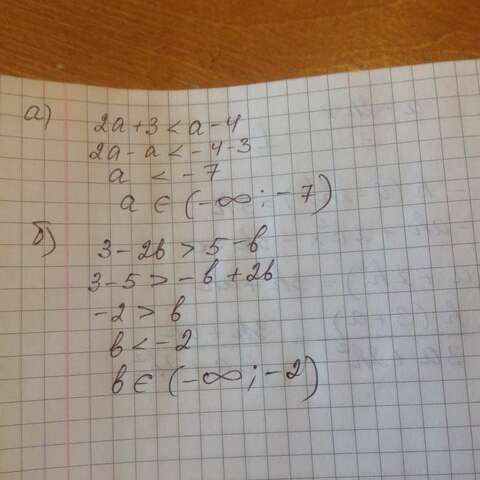 а)
2a+3<a-4
2a-a<-4-3
a <-7
a ∈ (-∞; -7)
б)
3-2b>5-b
3-5>-b+2b
-2>b
b<-2
b∈(-∞;-2)